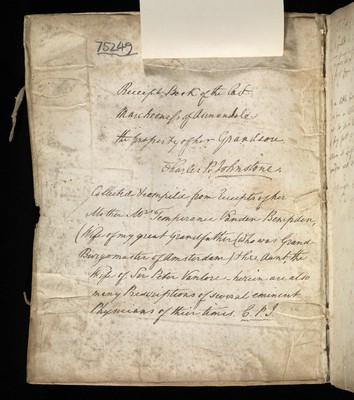 75249
Receipt Book of the late
Marchioness of Annandale
the property of her Grandson
Charles P. Johnstone.
Collected & compiled from Receipts of her
Mother Mrs. Temperance Vanden Bempden
(Wife of my great Grandfather) (who was Grand
Burgomaster of Amsterdam) & her Aunt the
Wife of Sir Peter Vanlore herein are also
many Prescriptions of several eminent
Physicians of their times. C. P. J.